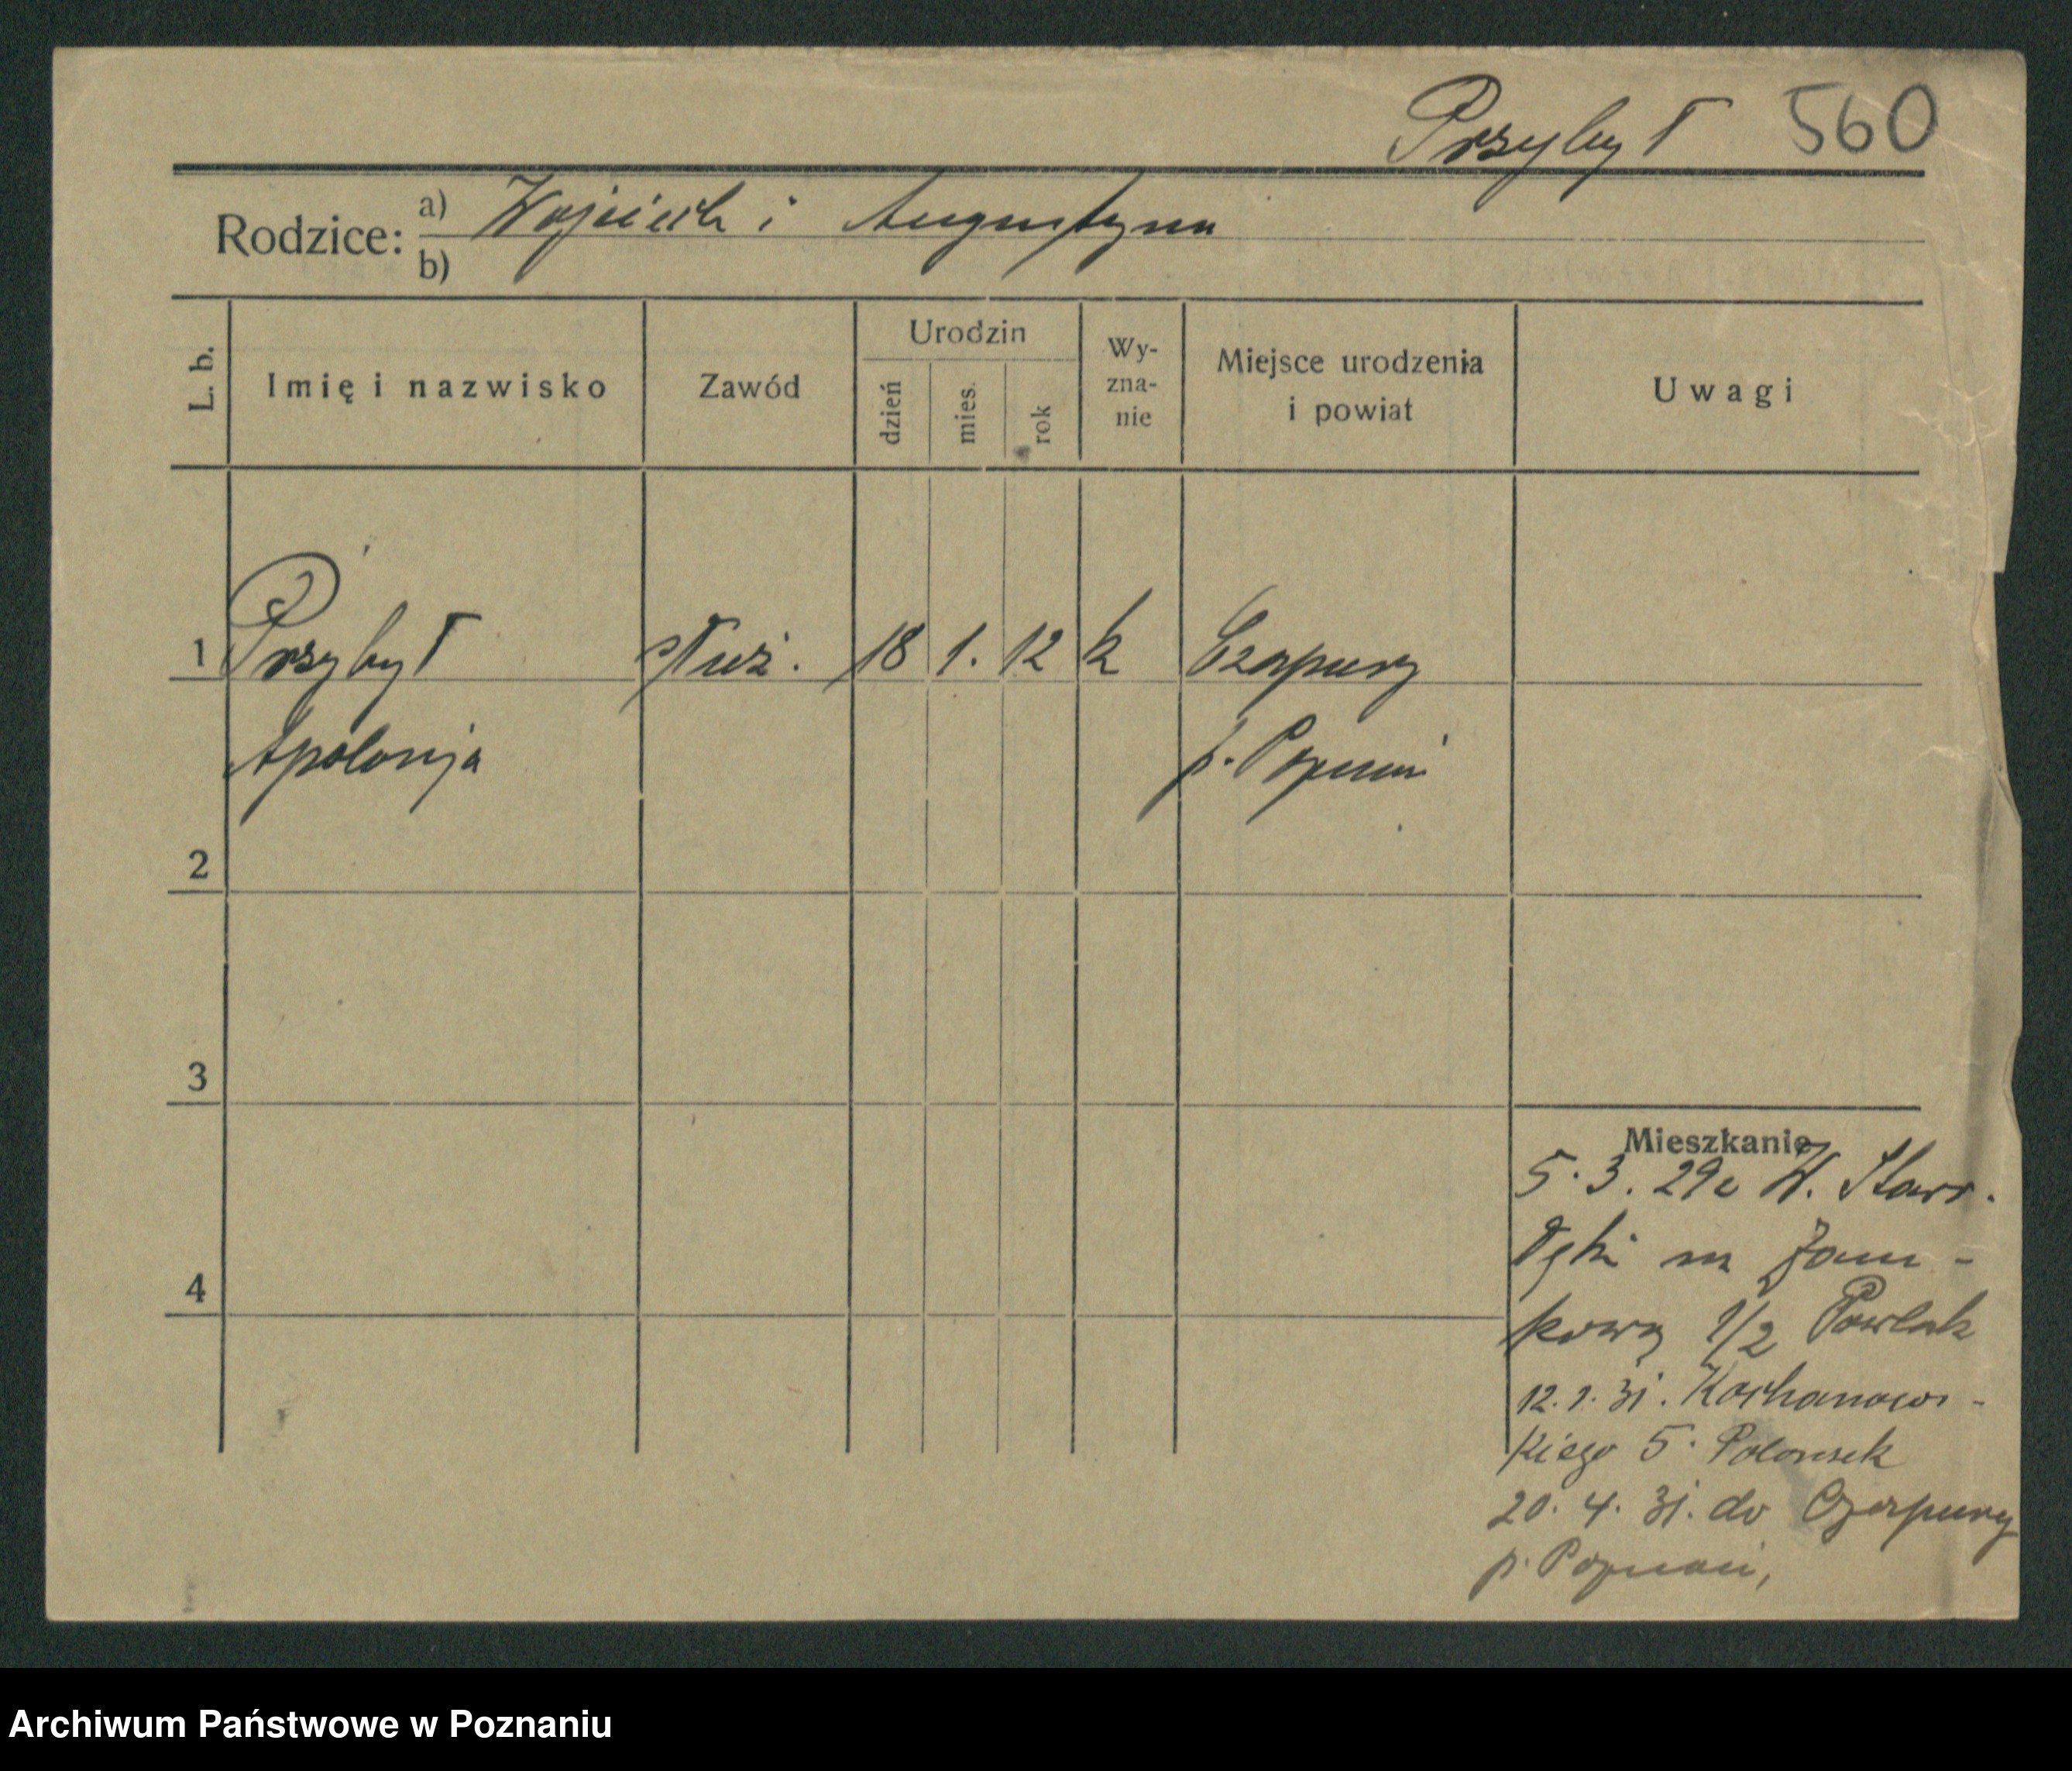 Przybył 560
Rodzice: a) Wojciech i Augustyna
b)
L. b. Imię i nazwisko Zawód Urodzin dzień mies. rok Wy-zna-nie Miejsce urodzenia i powiat Uwagi
1 Przybył służ. 18 1. 12 k Czapury
Apolonja p. Poznań
2
3
4
Mieszkanie
5. 3. 29 z W.
na Zam-
kową 1/2 Pawlak
12. 1. 31. Kochanows-
kiego 5
20. 4. 31. do Czapury
p. Poznań,
Archiwum Państwowe w Poznaniu